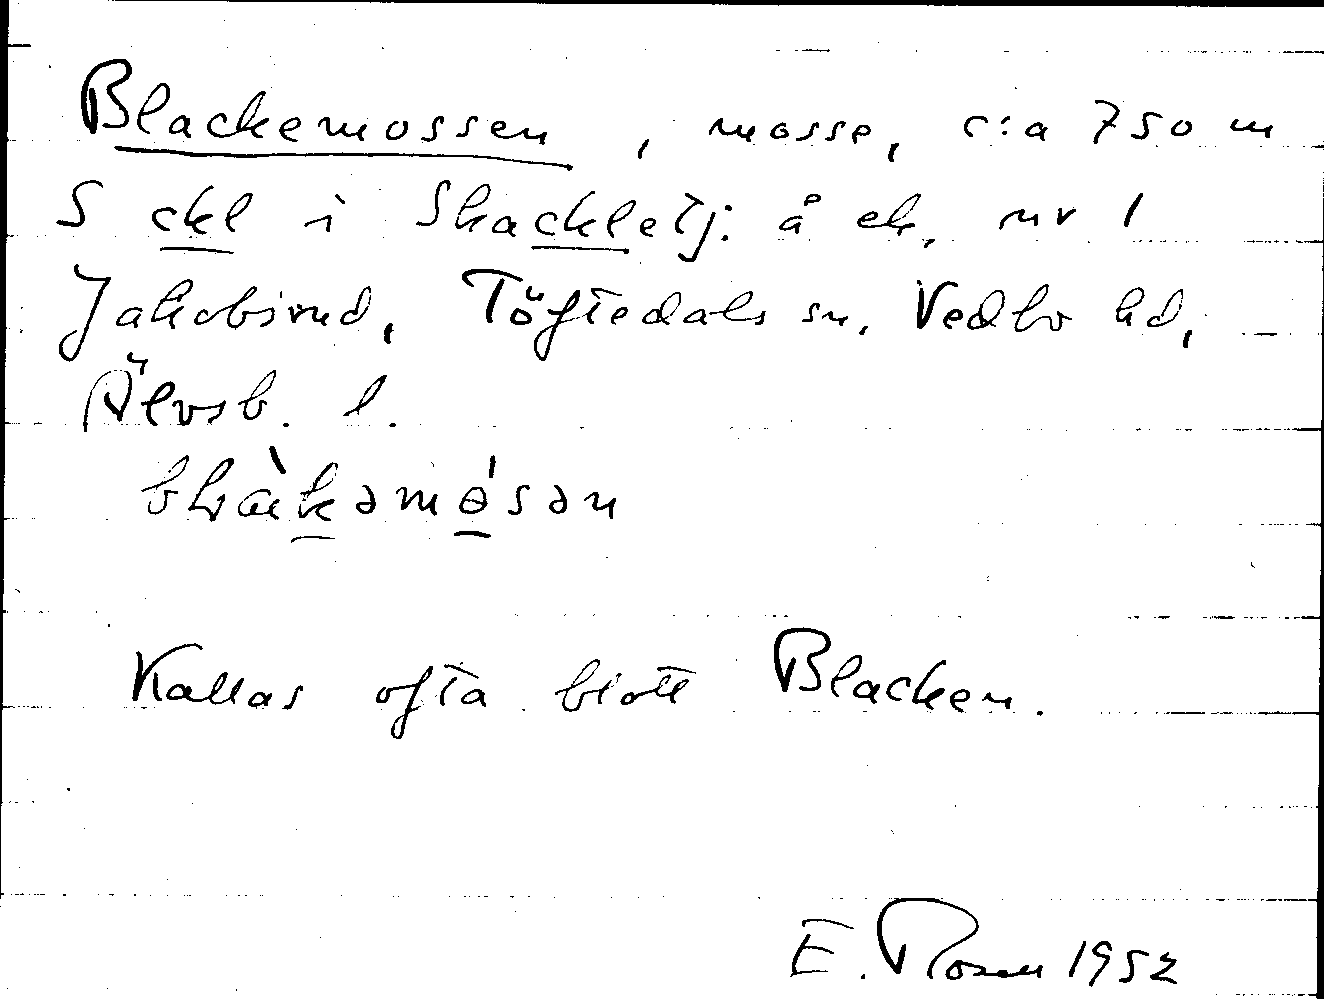 Blackemossen, mosse, c:a 750 m
S ckl i Skackletj: å ek, nr 1
Jakobsrud, Töftedals sn, Vedbo hd,
Älvsb. l.
Kallas ofta blott Blacken.
E. Rosen 1952